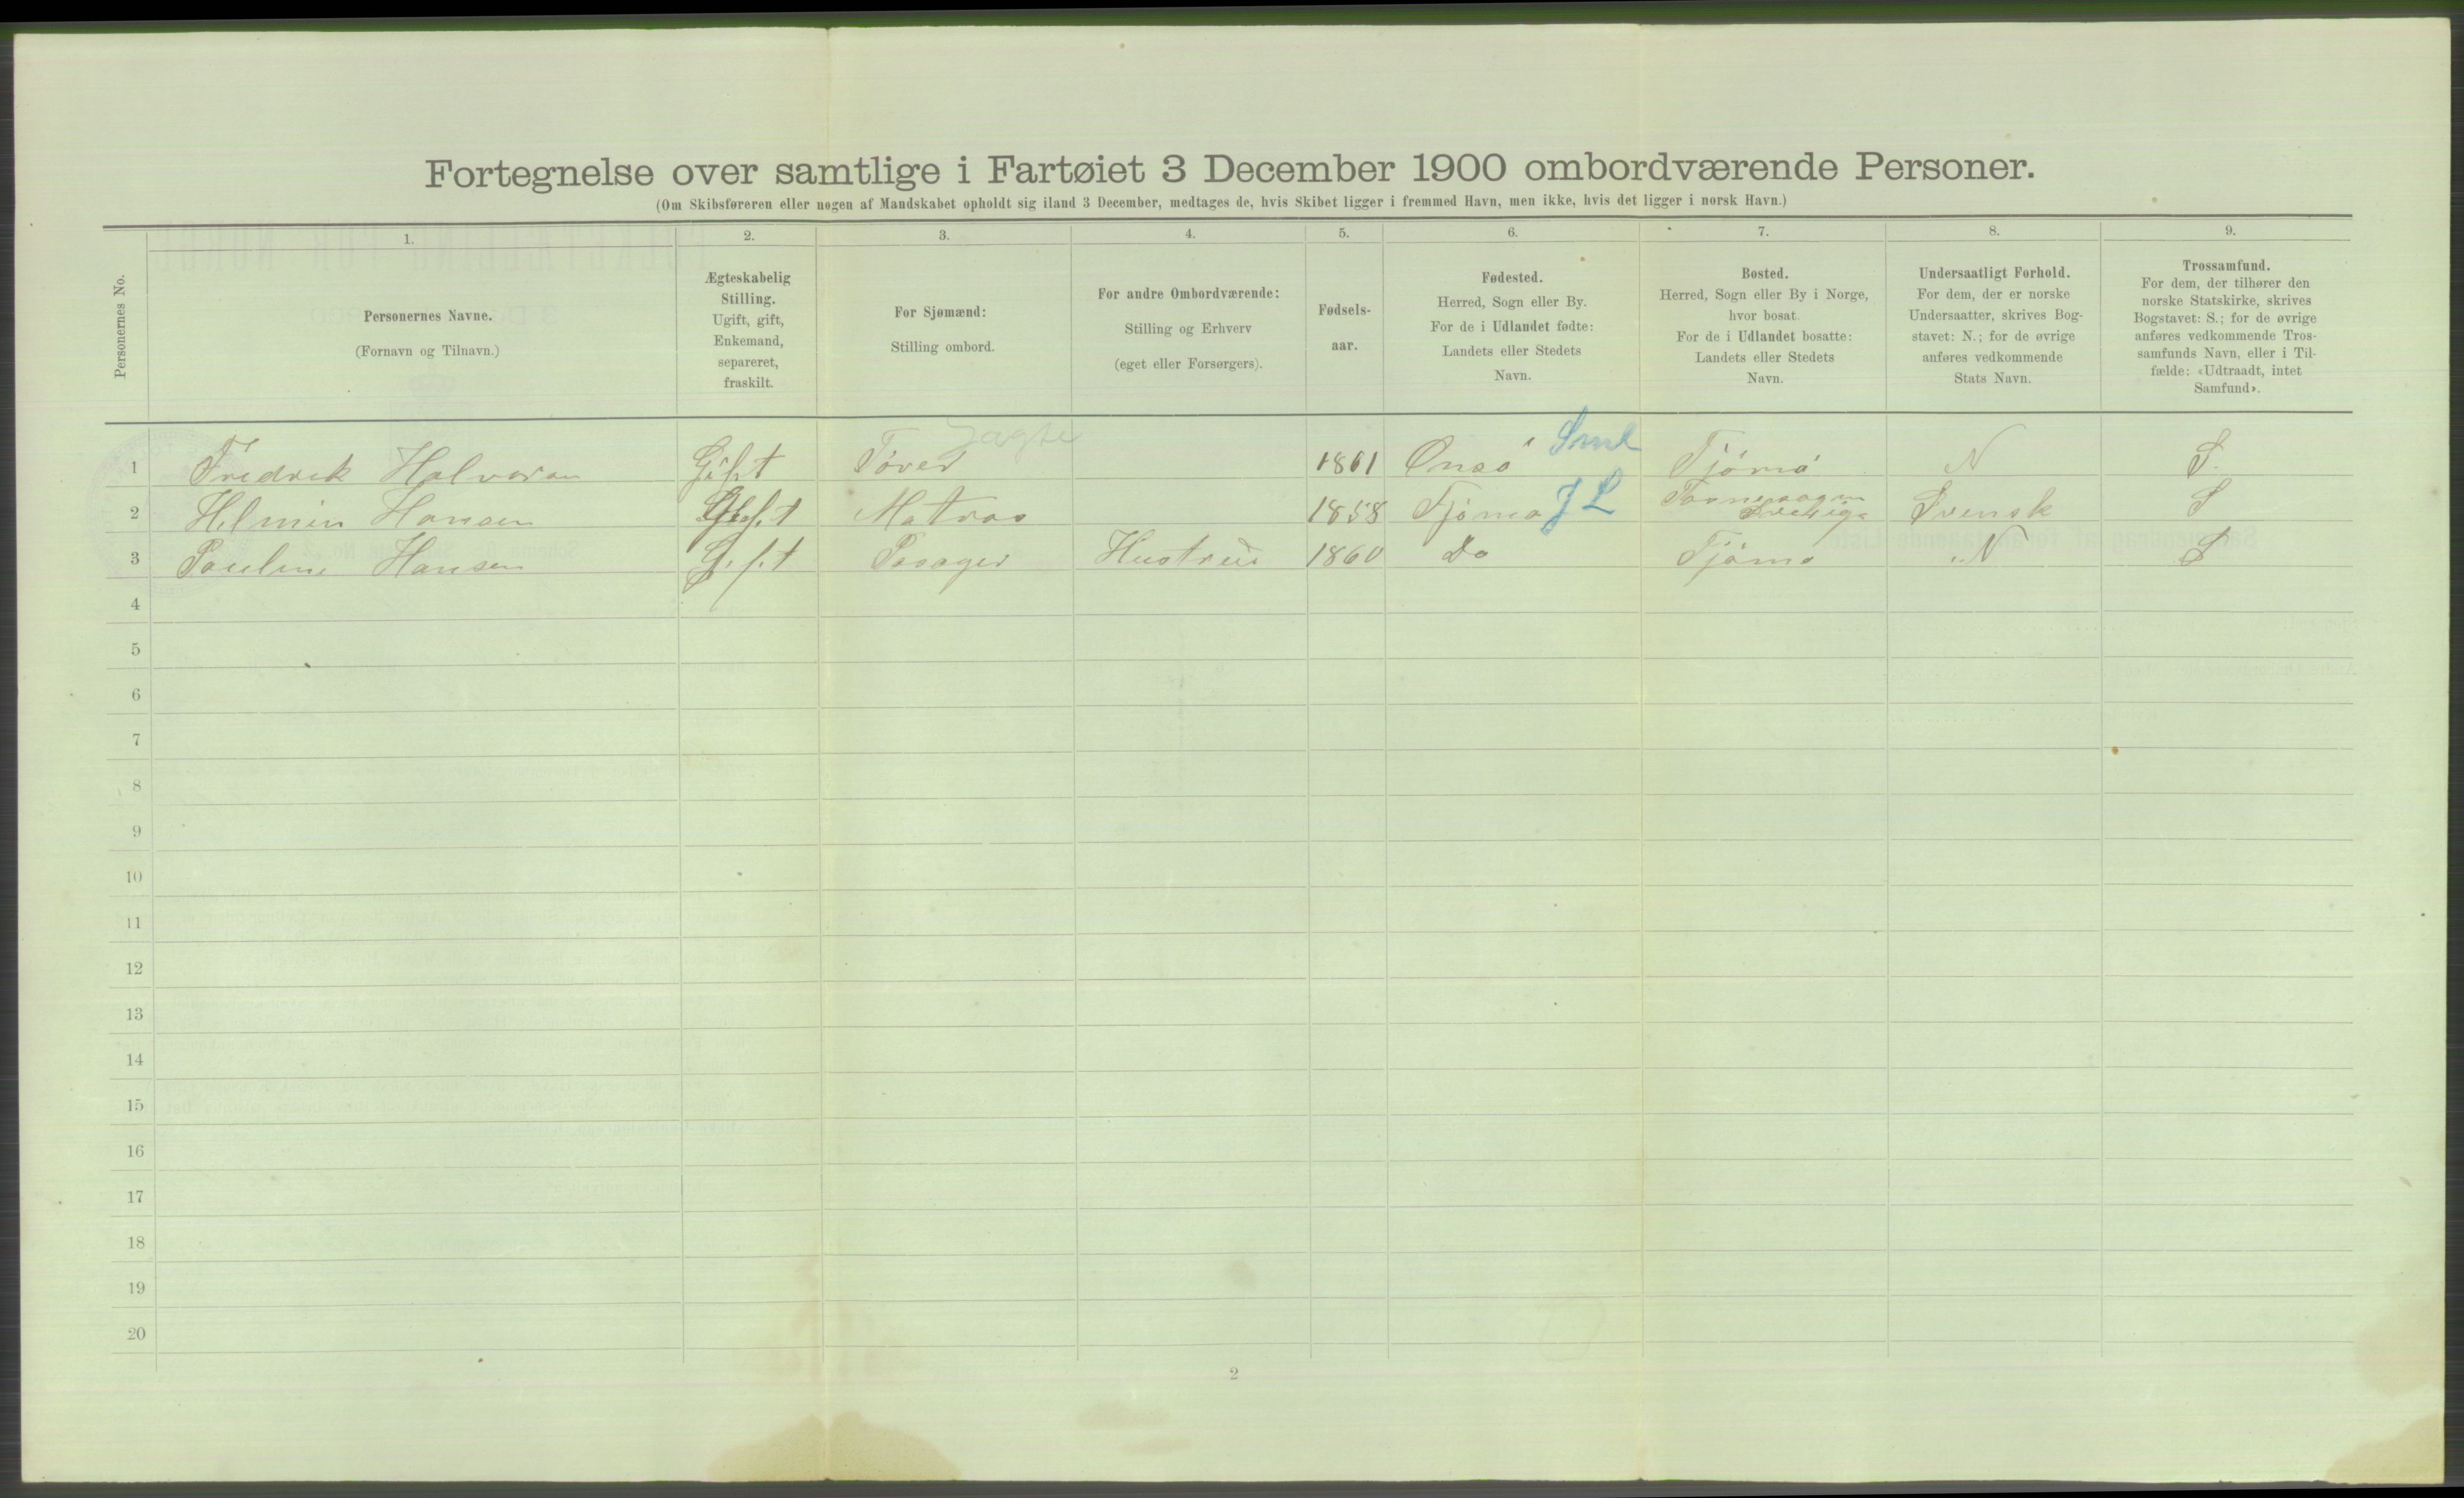 Fortegnelse over samtlige i Fartøiet 3 December 1900 ombordværende Personer.
(Om Skibsføreren eller nogen af Mandskabet opholdt sig iland 3 December, medtages de, hvis Skibet ligger i fremmed Havn, men ikke, hvis det ligger i norsk Havn.)
Personernes No.
1.
Personernes Navne.
(Fornavn og Tilnavn.)
2.
Ægteskabelig
Stilling.
Ugift, gift,
Enkemand,
separeret,
fraskilt.
3.
For Sjømænd:
Stilling ombord.
4.
For andre Ombordværende:
Stilling og Erhverv
(eget eller Forsørgers).
5.
Fødsels-
aar.
6.
Fødested.
Herred, Sogn eller By.
For de i Udlandet fødte:
Landets eller Stedets
Navn.
7.
Bosted.
Herred, Sogn eller By i Norge,
hvor bosat.
For de i Udlandet bosatte:
Landets eller Stedets
Navn.
8.
Undersaatligt Forhold.
For dem, der er norske
Undersaatter, skrives Bog-
stavet: N.; for de øvrige
anføres vedkommende
Stats Navn.
9.
Trossamfund.
For dem, der tilhører den
norske Statskirke, skrives
Bogstavet: S.; for de øvrige
anføres vedkommende Tros-
samfunds Navn, eller i Til-
fælde: «Udtraadt, intet
Samfund».
1 Fredrek Halvorsn Gift Förer Jagte 1861 Onsö Sml Tjömö N S.
2 Helmin Hansen Gift Matros 1858 Tjömö J L Sverige Svensk S
3 Pauline Hansen Gift Pasager Hustru 1860 Do Tjömö N S
4
5
6
7
8
9
10
11
12
13
14
15
16
17
18
19
20
2